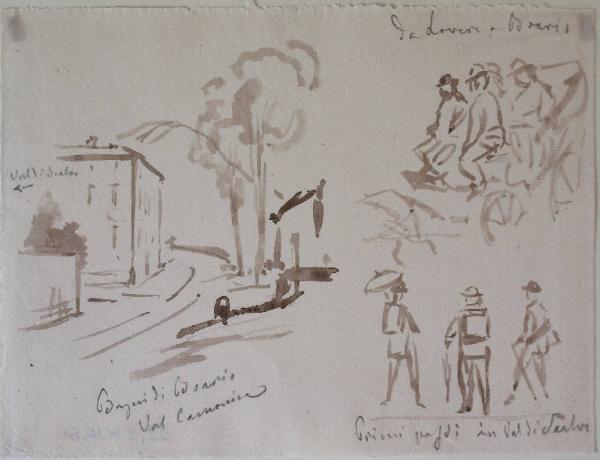 Da Lovere a Boario
Val di Scalve
Bagni di Boario
Val Camonica
Primi passi in Val di Scalve